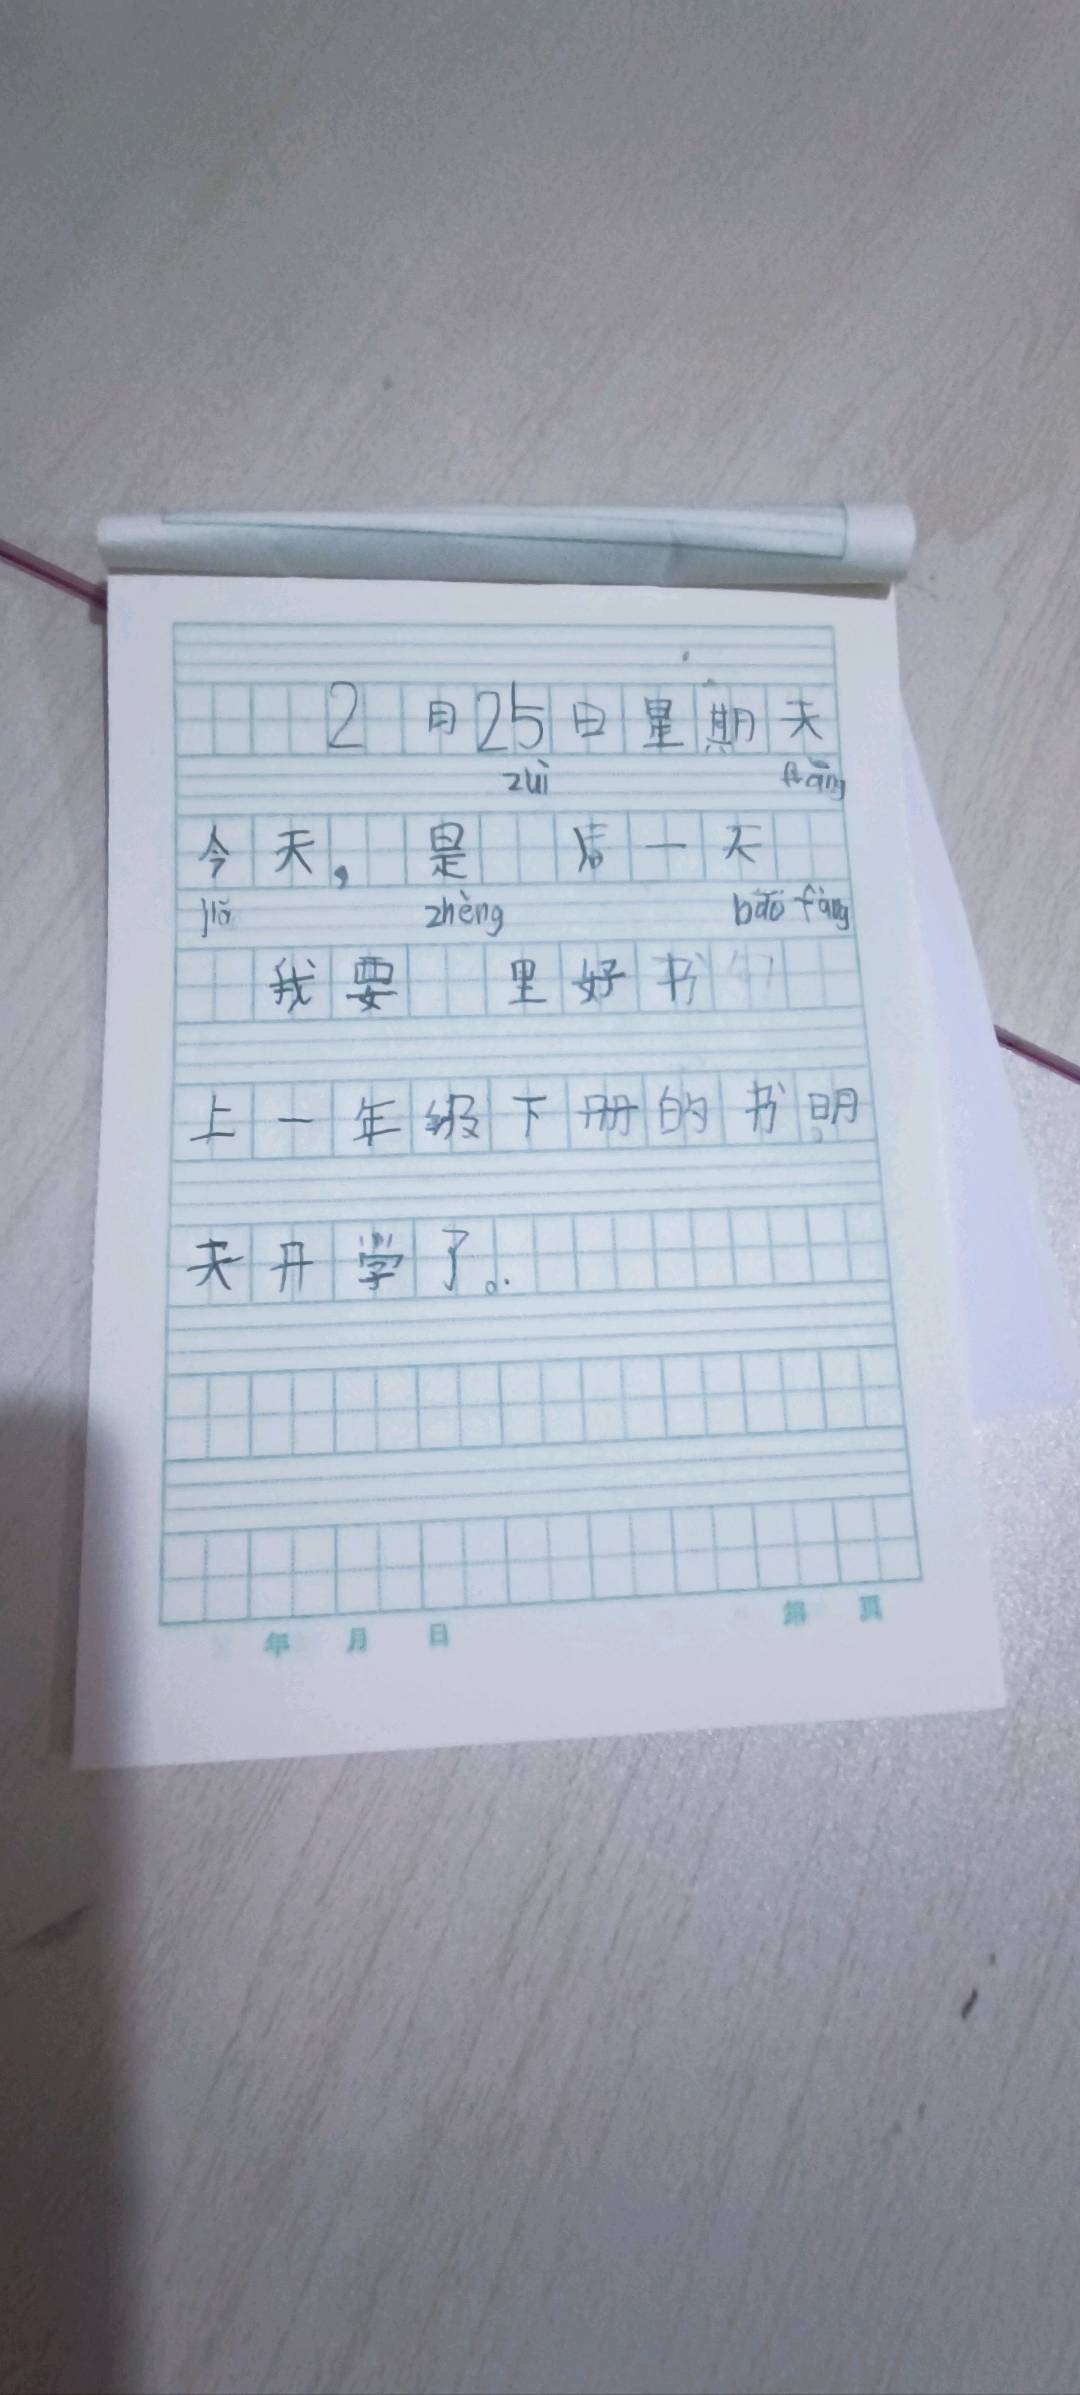 2月25日星期天
zuì fàng
今天，是 后一天
jiǎ zhèng bāo fàng
我要 里好书
上一年级下册的书明
天开学了。
年 月 日 第 页